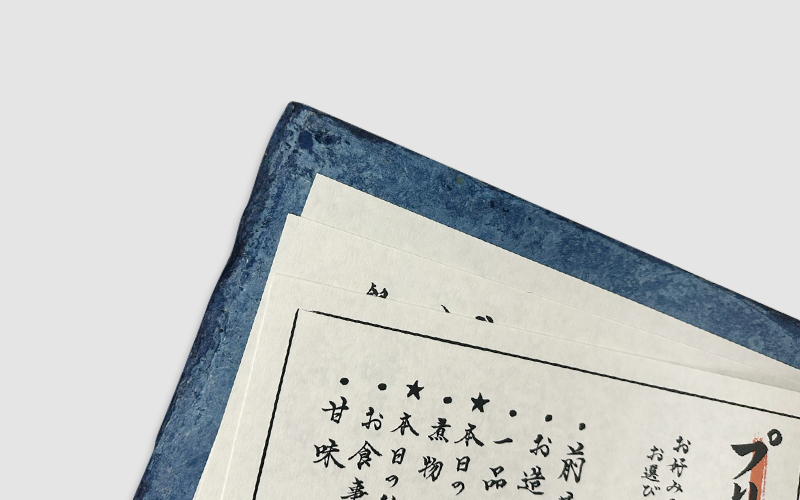 プリ
お好み
お選び
前
お造
一品
★本日の
煮物
★本日の
お食事
甘味